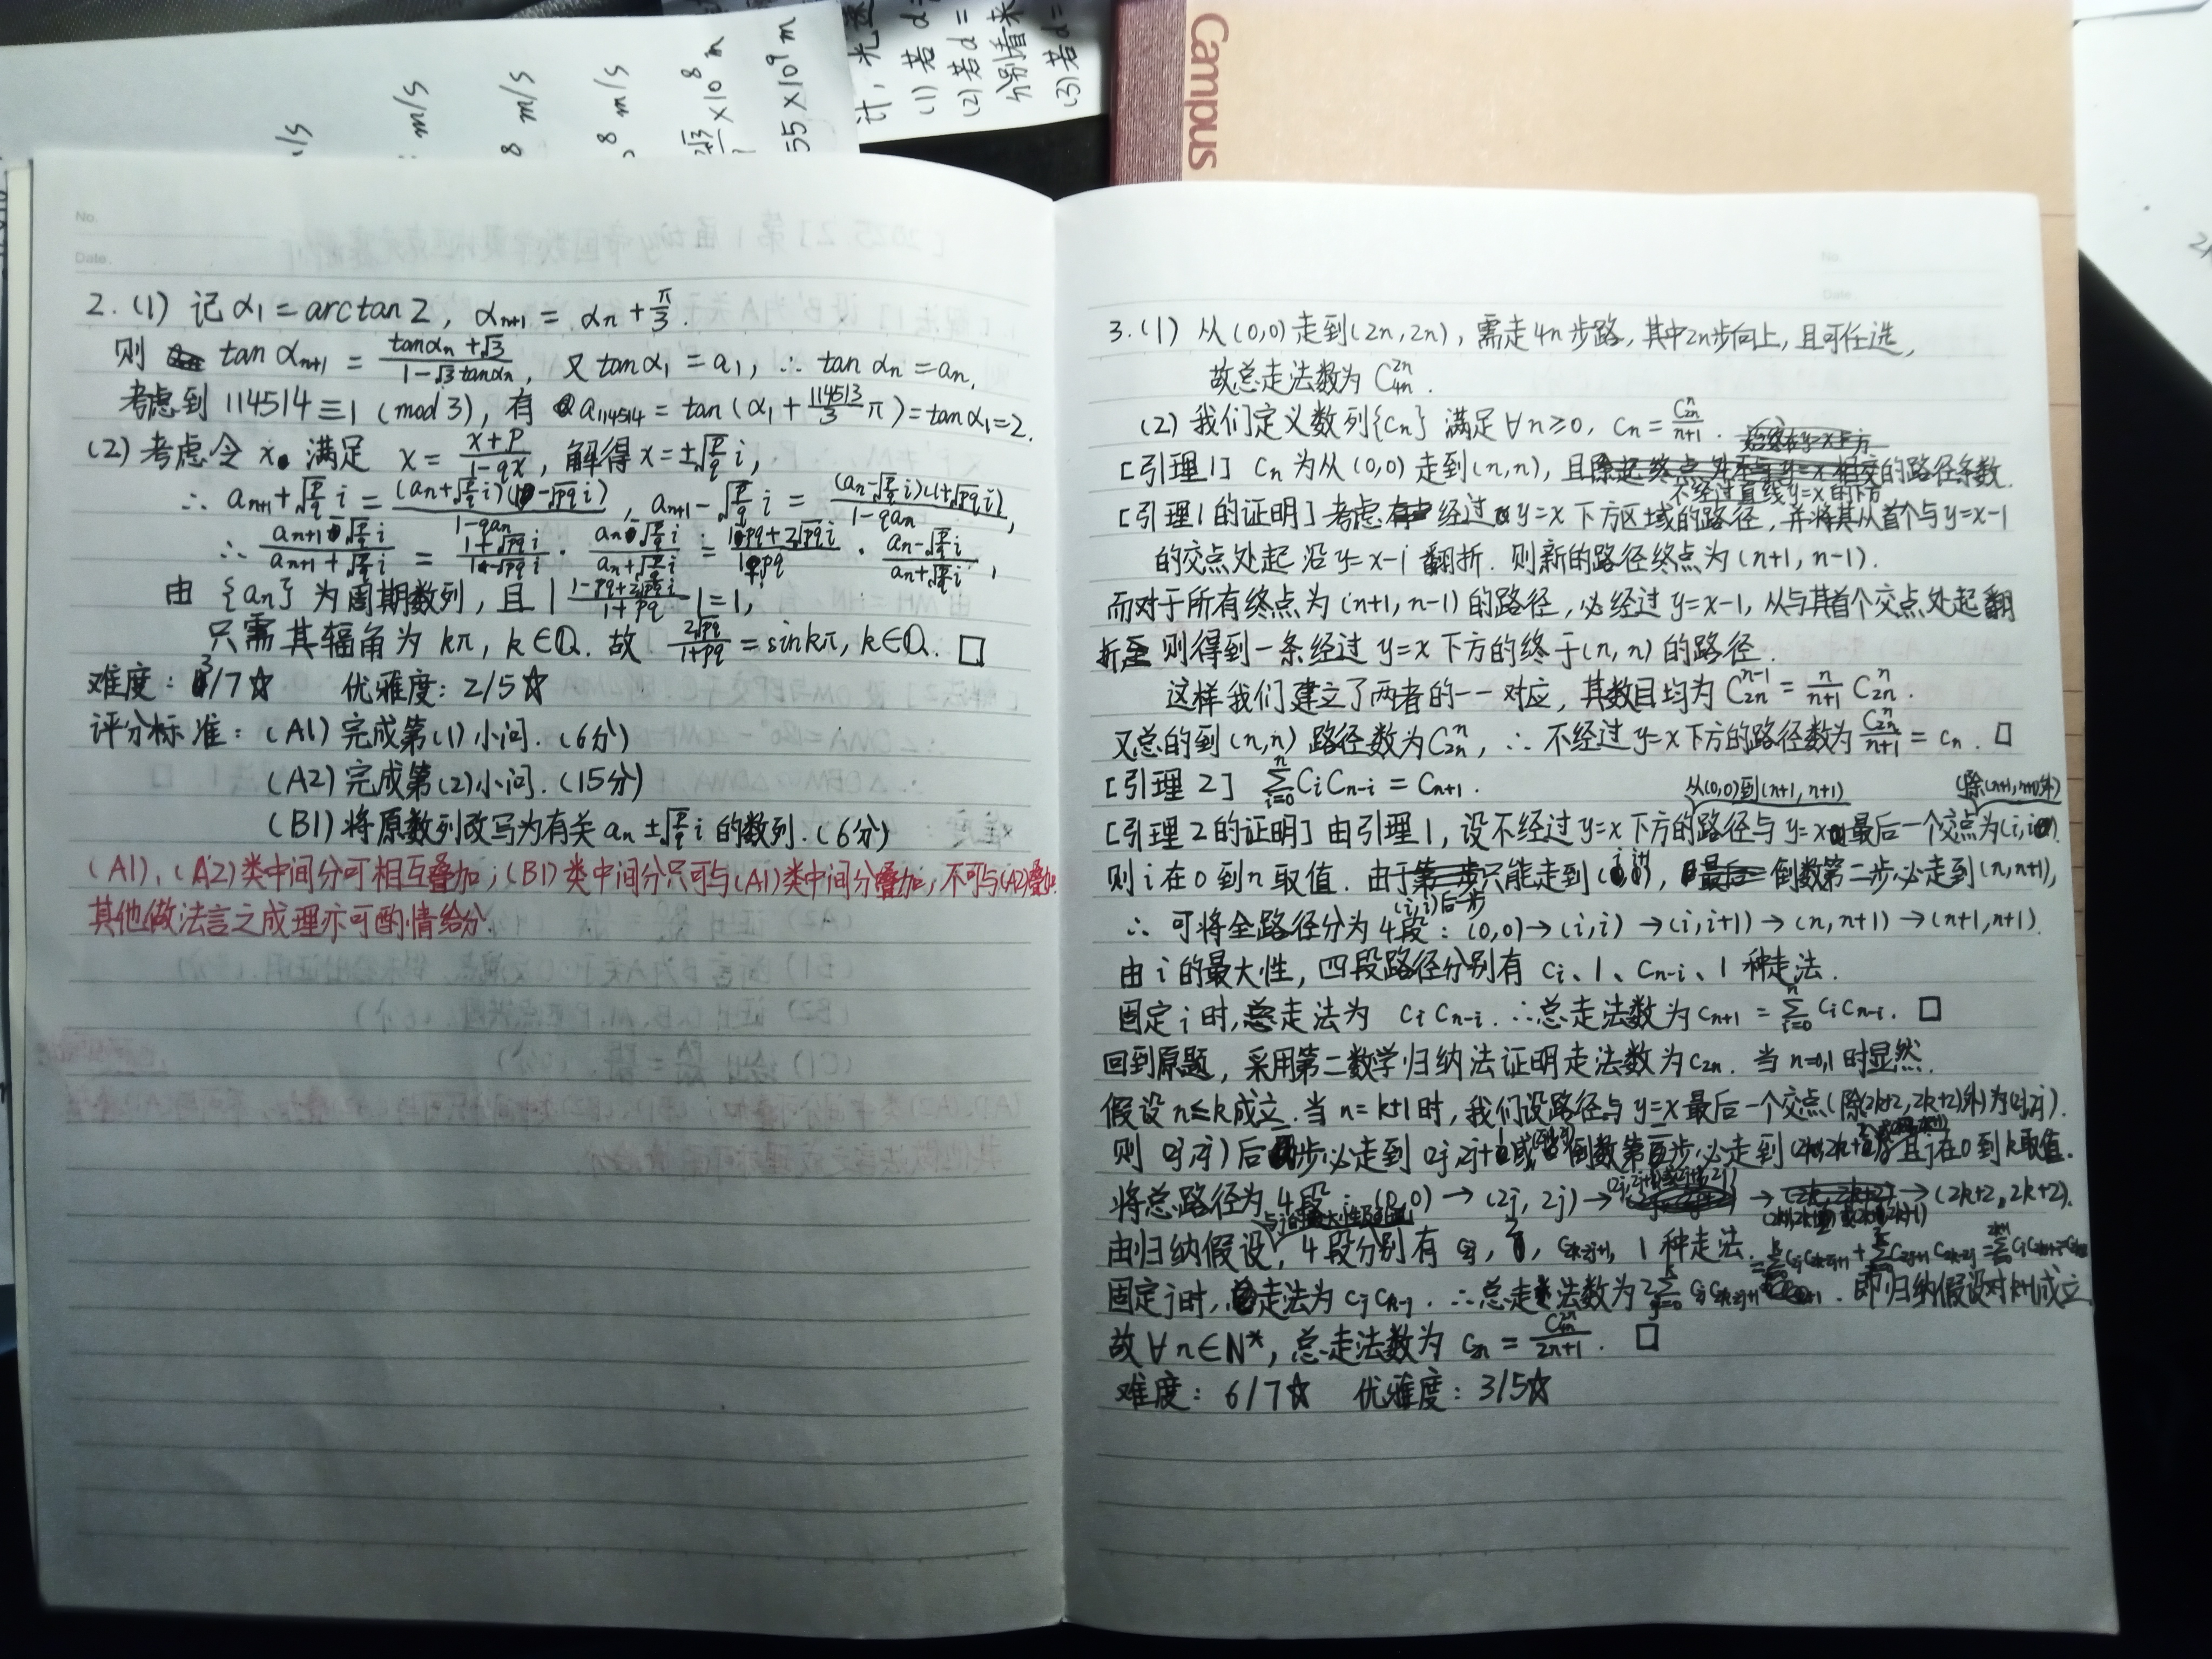 m/s
m/s
8 m/s
8 m/s
×10⁸ m
55×10⁹ m
(1) 若 d=
(2) 若 d=
分别看来
(3) 若 d=
Campus
No.
Date.
2. (1) 记 α₁ = arctan 2, αₙ₊₁ = αₙ + π/3.
则 tan αₙ₊₁ = (tan αₙ + √3)/(1 - √3 tan αₙ), 又 tan α₁ = a₁, ∴ tan αₙ = aₙ,
考虑到 114514 ≡ 1 (mod 3), 有 a₁₁₄₅₁₄ = tan(α₁ + 114513/3 π) = tan α₁ = 2.
(2) 考虑令 x 满足 x = (x+p)/(1-qx), 解得 x = ±√(p/q) i,
∴ aₙ₊₁ + √(p/q) i = (aₙ + √(p/q) i)(1 - √(pq) i)/(1 - qaₙ), aₙ₊₁ - √(p/q) i = (aₙ - √(p/q) i)(1 + √(pq) i)/(1 - qaₙ),
∴ (aₙ₊₁ - √(p/q) i)/(aₙ₊₁ + √(p/q) i) = (1 + √(pq) i)/(1 - √(pq) i) · (aₙ - √(p/q) i)/(aₙ + √(p/q) i) = (1 - pq + 2√(pq) i)/(1 + pq) · (aₙ - √(p/q) i)/(aₙ + √(p/q) i),
由 {aₙ} 为周期数列, 且 |(1 - pq + 2√(pq) i)/(1 + pq)| = 1,
只需其辐角为 kπ, k∈Q. 故 2√(pq)/(1+pq) = sin kπ, k∈Q. □
难度: 3/7☆ 优雅度: 2/5☆
评分标准: (A1) 完成第(1)小问. (6分)
(A2) 完成第(2)小问. (15分)
(B1) 将原数列改写为有关 aₙ ± √(p/q) i 的数列. (6分)
(A1), (A2) 类中间分可相互叠加; (B1) 类中间分只可与(A1)类中间分叠加, 不可与(A2)叠加.
其他做法言之成理亦可酌情给分.
No.
Date
3. (1) 从(0,0)走到(2n,2n), 需走4n步路, 其中2n步向上, 且可任选,
故总走法数为 C₄ₙ²ⁿ.
(2) 我们定义数列{cₙ} 满足 ∀n≥0, cₙ = C₂ₙⁿ/(n+1).
[引理1] cₙ 为从(0,0)走到(n,n), 且不经过直线y=x的下方的路径条数.
[引理1的证明] 考虑经过 y=x 下方区域的路径, 并将其从首个与 y=x-1
的交点处起沿 y=x-1 翻折. 则新的路径终点为 (n+1, n-1).
而对于所有终点为 (n+1, n-1) 的路径, 必经过 y=x-1, 从与其首个交点处起翻
折 则得到一条经过 y=x 下方的终于(n,n) 的路径.
这样我们建立了两者的一一对应, 其数目均为 C₂ₙⁿ⁻¹ = n/(n+1) C₂ₙⁿ.
又总的到(n,n) 路径数为 C₂ₙⁿ, ∴ 不经过 y=x 下方的路径数为 C₂ₙⁿ/(n+1) = cₙ. □
[引理2] Σᵢ₌₀ⁿ cᵢ cₙ₋ᵢ = cₙ₊₁.
[引理2的证明] 由引理1, 设从(0,0)到(n+1,n+1)不经过 y=x 下方的路径与 y=x 最后一个交点(除(n+1,n+1)外)为(i,i).
则 i 在 0 到 n 取值. 由于(i,i)后一步只能走到(i,i+1), 倒数第二步必走到(n,n+1),
∴ 可将全路径分为4段: (0,0)→(i,i)→(i,i+1)→(n,n+1)→(n+1,n+1).
由 i 的最大性, 四段路径分别有 cᵢ、1、cₙ₋ᵢ、1 种走法.
固定 i 时, 总走法为 cᵢ cₙ₋ᵢ. ∴ 总走法数为 cₙ₊₁ = Σᵢ₌₀ⁿ cᵢ cₙ₋ᵢ. □
回到原题, 采用第二数学归纳法证明走法数为 c₂ₙ. 当 n=0,1 时显然.
假设 n≤k 成立. 当 n=k+1 时, 我们设路径与 y=x 最后一个交点(除(2k+2,2k+2)外)为(2j,2j).
则 (2j,2j) 后一步必走到 (2j,2j+1)或 倒数第二步必走到 且j在0到k取值.
将总路径为4段: (0,0)→(2j,2j)→(2j,2j+1)或(2j+1,2j)→(2k+1,2k+2)或(2k+2,2k+1)→(2k+2,2k+2).
由归纳假设, 4段分别有 c₂ⱼ, 2, c₂ₖ₋₂ⱼ₊₁, 1 种走法.
固定 j 时, 总走法为 cⱼ cₙ₋ⱼ. ∴ 总走法数为 2Σⱼ₌₀ᵏ c₂ⱼ c₂ₖ₋₂ⱼ₊₁ 即归纳假设对k+1成立
故 ∀n∈N*, 总走法数为 c₂ₙ = C₄ₙ²ⁿ/(2n+1). □
难度: 6/7☆ 优雅度: 3/5☆